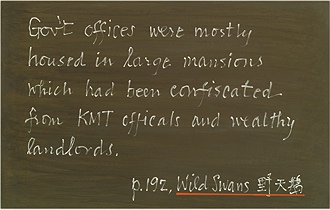 Gov't offices were mostly
housed in large mansions
which had been confiscated
from KMT officals and wealthy
landlords.
p.192, Wild Swans 野天鵝